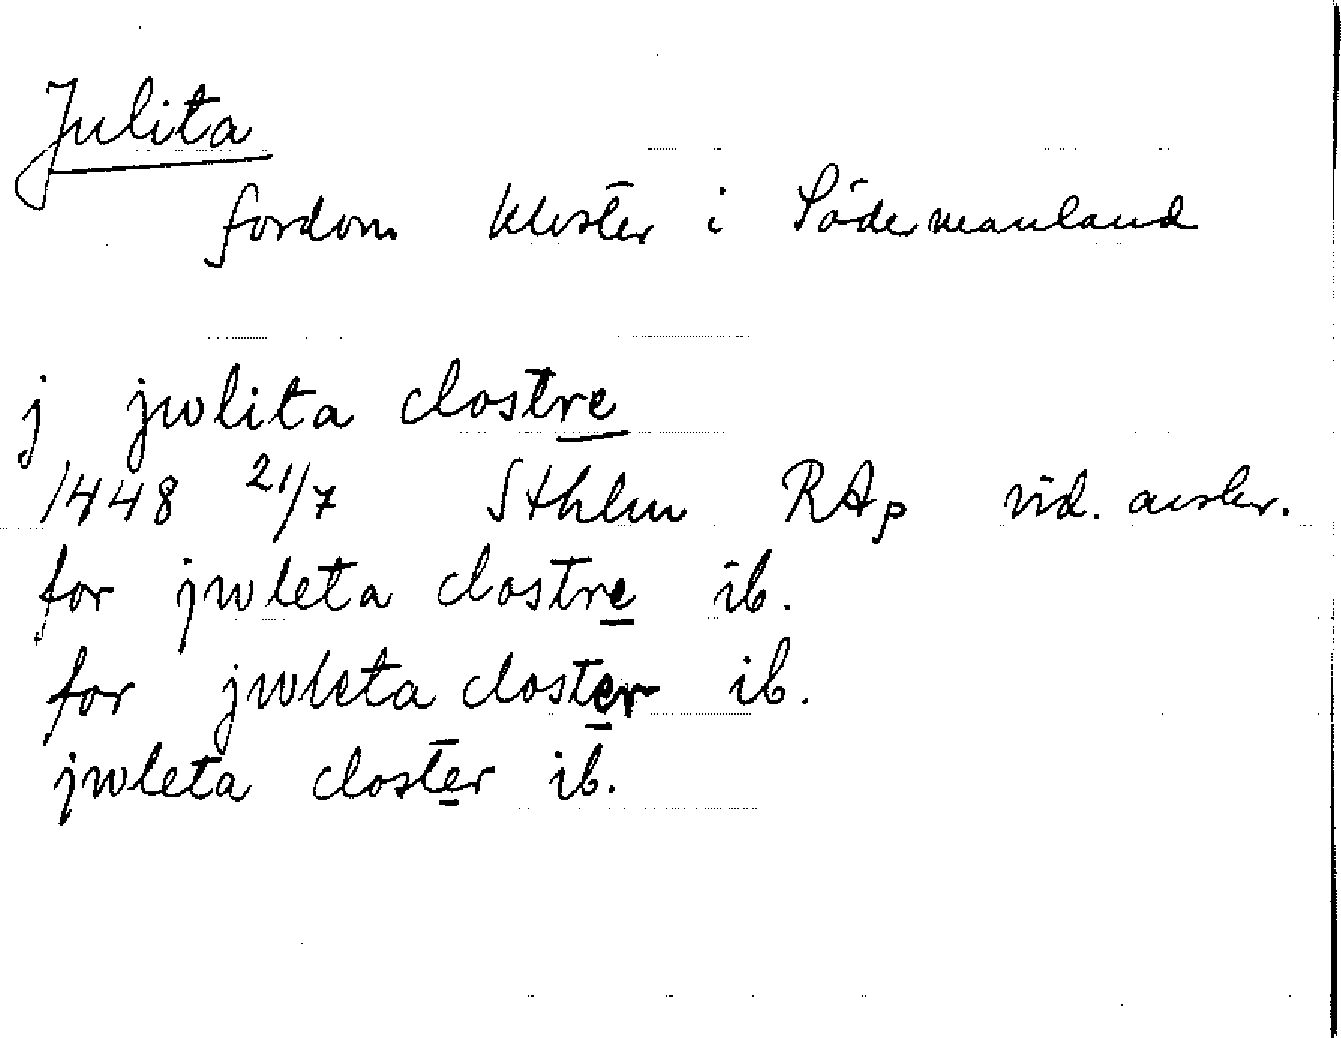 Julita
fordom kloster i Södermanland
j jwlita clostre
1448 21/7 Sthlm RAp vid. avskr.
for jwleta clostre ib.
for jwleta closter ib.
jwleta closter ib.